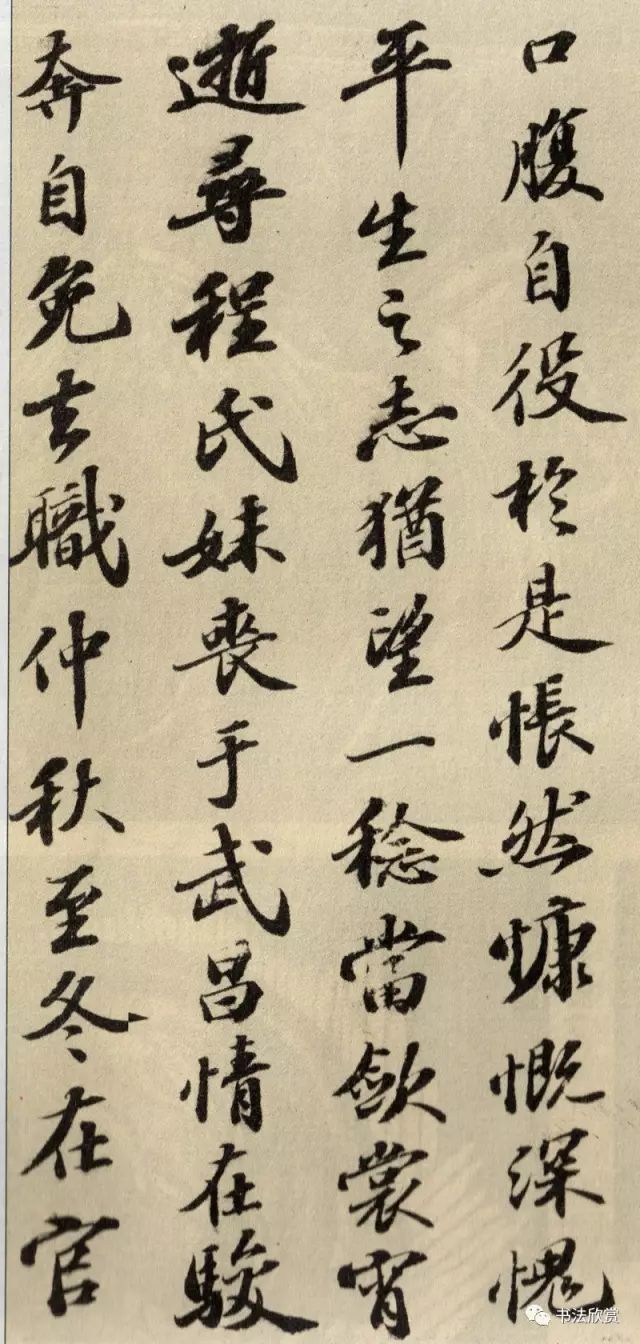 口腹自役於是悵然慷慨深愧
平生之志猶望一稔當歛裳宵
逝尋程氏妹喪于武昌情在駿
奔自免去職仲秋至冬在官
书法欣赏